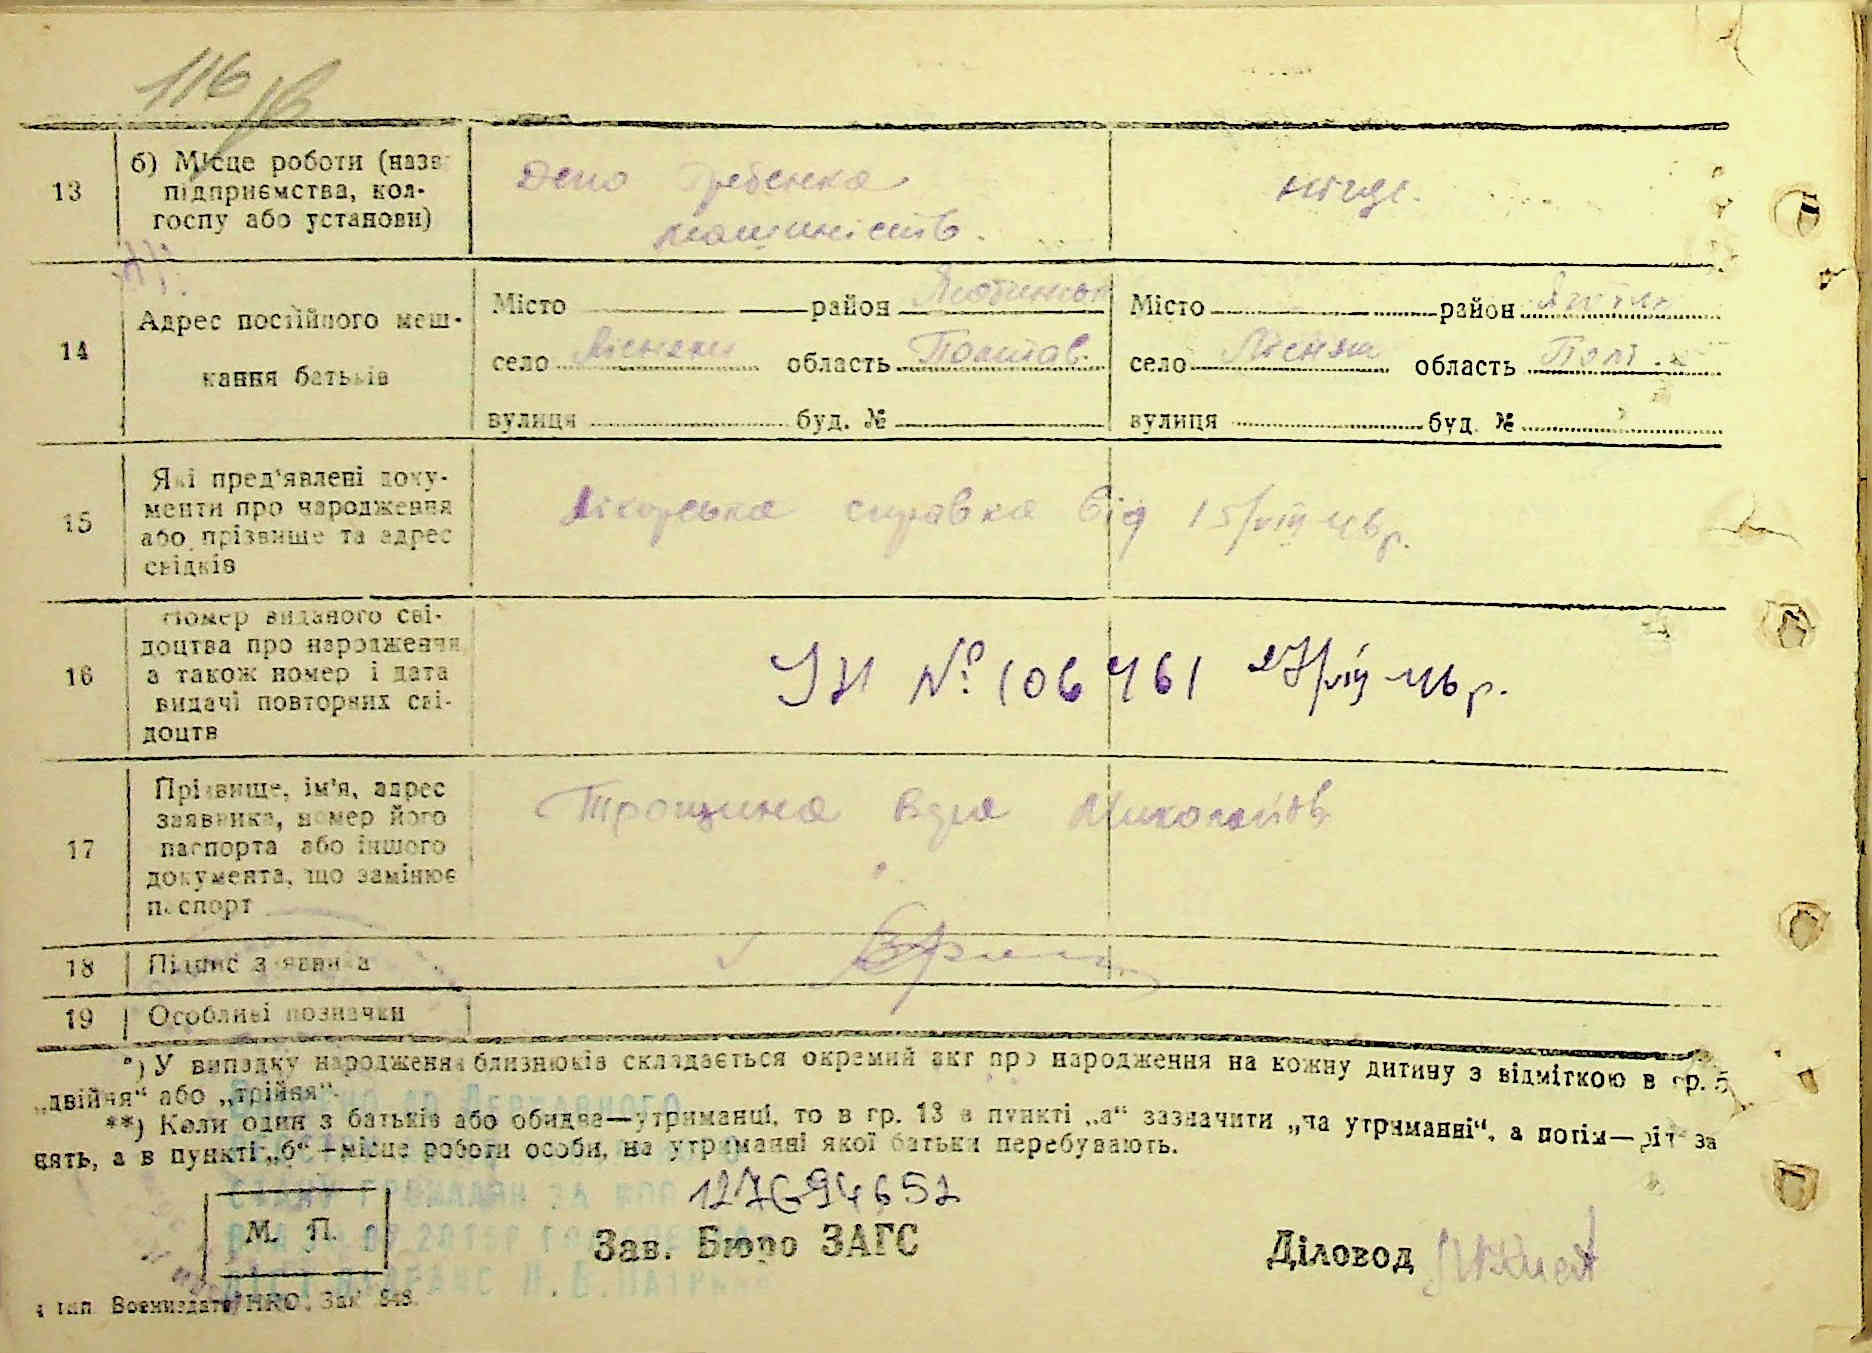 116
13
б) Місце роботи (назва
підприємства, кол-
госпу або установи)
Депо Гребенка
машиністів.
нігде.
14
Адрес постійного меш-
кання батьків
Місто район
село Лісняки область Полтав.
вулиця буд. №
Місто район
село Лісняки область Полт
вулиця буд. №
15
Які пред'явлені доку-
менти про народження
або прізвище та адрес
свідків
Лікарська справка від 15/VIII 46 р.
16
Номер виданого сві-
доцтва про народження
а також номер і дата
видачі повторних сві-
доцтв
№ 106461 27/VIII-46 р.
17
Прізвище, ім'я, адрес
заявника, номер його
паспорта або іншого
документа, що замінює
паспорт
Трощина Миколаїв
18
Підпис заявника
19
Особливі позначки
*) У випадку народження близнюків складається окремий акт про народження на кожну дитину з відміткою в гр. 5
„двійня“ або „трійня“.
**) Коли один з батьків або обидва—утриманці, то в гр. 13 в пункті „а“ зазначити „на утриманні“, а потім—рід за
нять, а в пункті „б“—місце роботи особи, на утриманні якої батьки перебувають.
М. П.
Зав. Бюро ЗАГС
Діловод
тип. Воениздата НКО. Зак. 848.